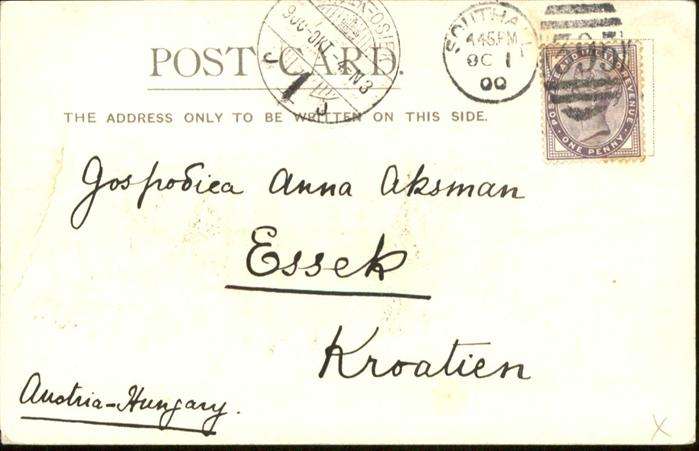 POST CARD.
THE ADDRESS ONLY TO BE WRITTEN ON THIS SIDE.
SOUTHALL
445PM
OC 1
00
POSTAGE AND INLAND REVENUE
ONE PENNY
900-OKT.4-N3
J 1 J
Gospodica Anna Aksman
Essek
Kroatien
Austria-Hungary.
X